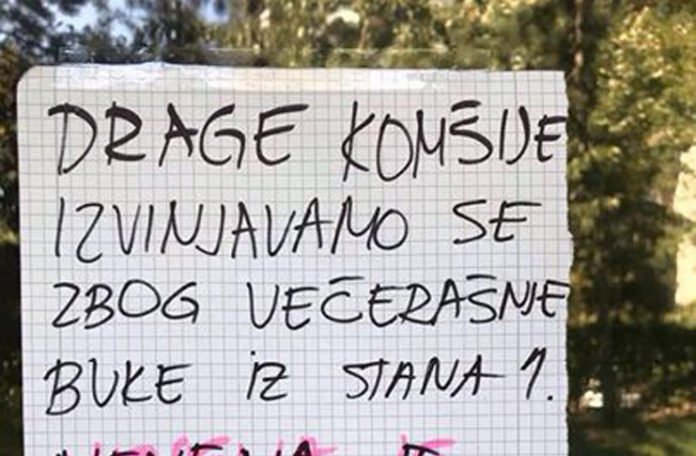 DRAGE KOMŠIJE
IZVINJAVAMO SE
ZBOG VEČERAŠNJE
BUKE IZ STANA 1.